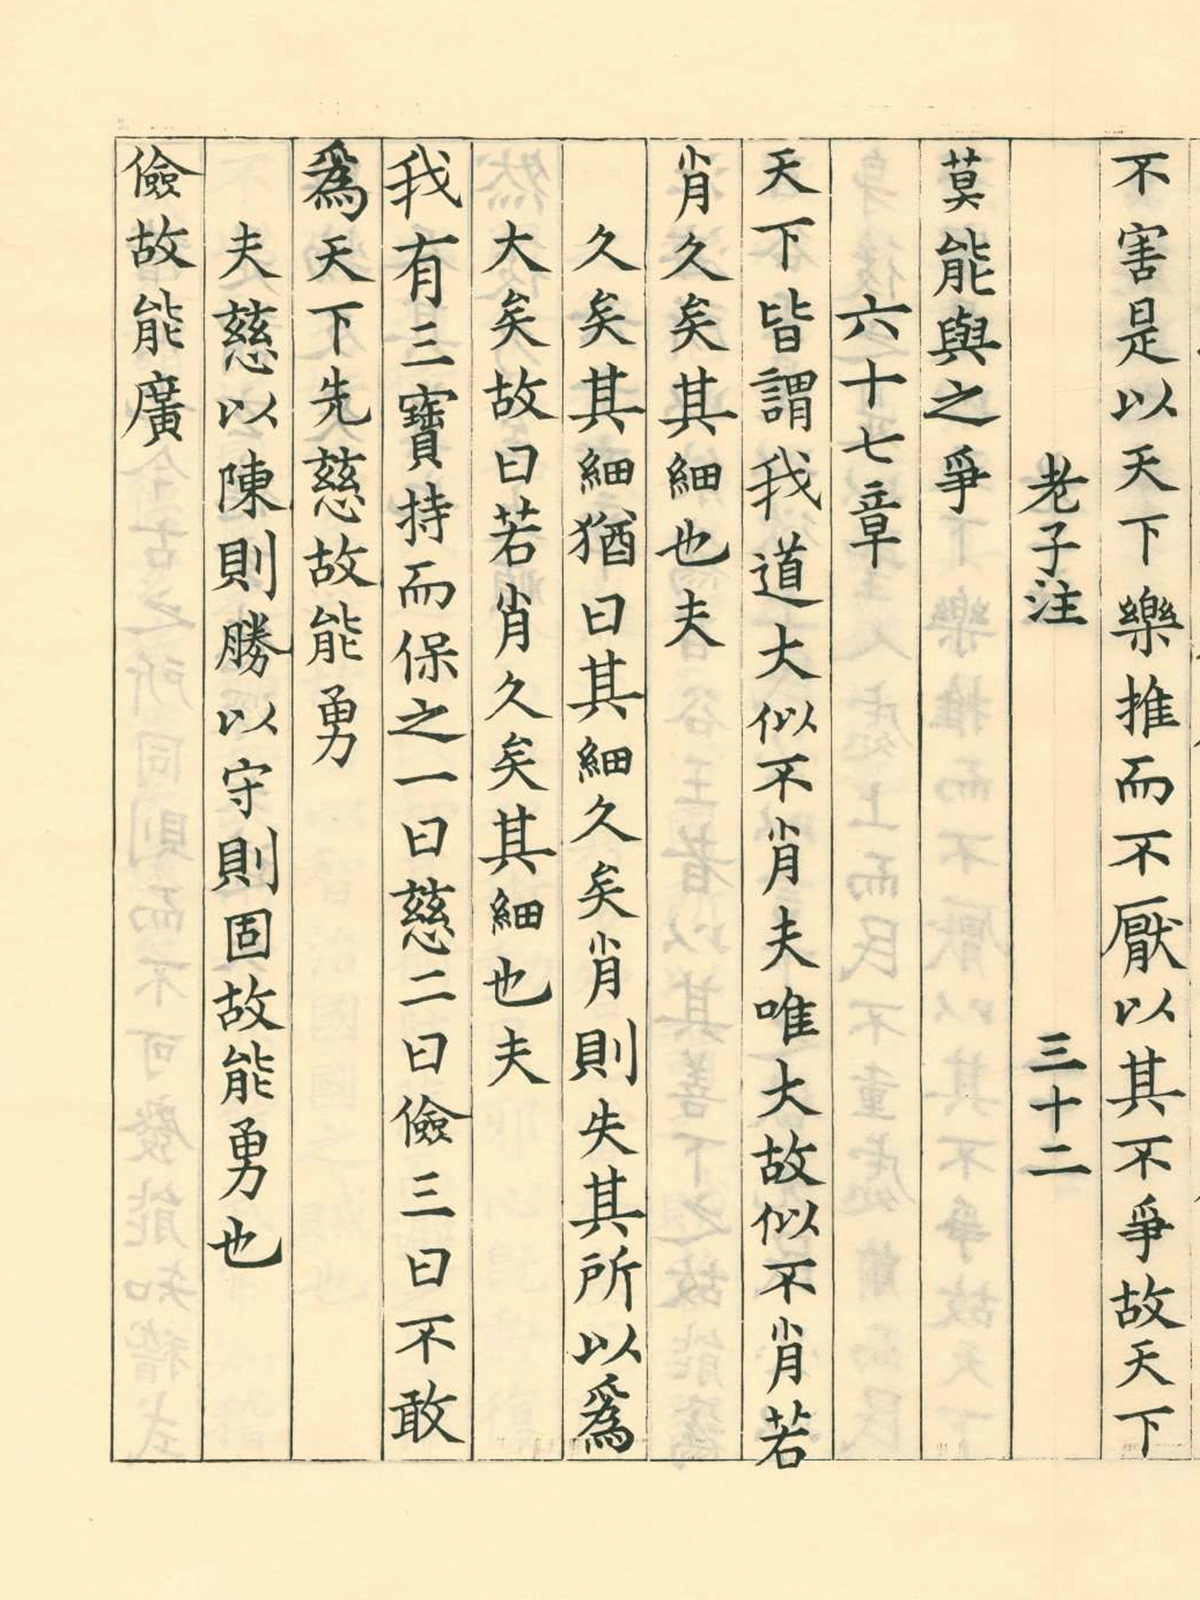 不害是以天下樂推而不厭以其不爭故天下
老子注 三十二
莫能與之爭
六十七章
天下皆謂我道大似不肖夫唯大故似不肖若
肖久矣其細也夫
久矣其細猶曰其細久矣肖則失其所以爲
大矣故曰若肖久矣其細也夫
我有三寶持而保之一曰慈二曰儉三曰不敢
爲天下先慈故能勇
夫慈以陳則勝以守則固故能勇也
儉故能廣